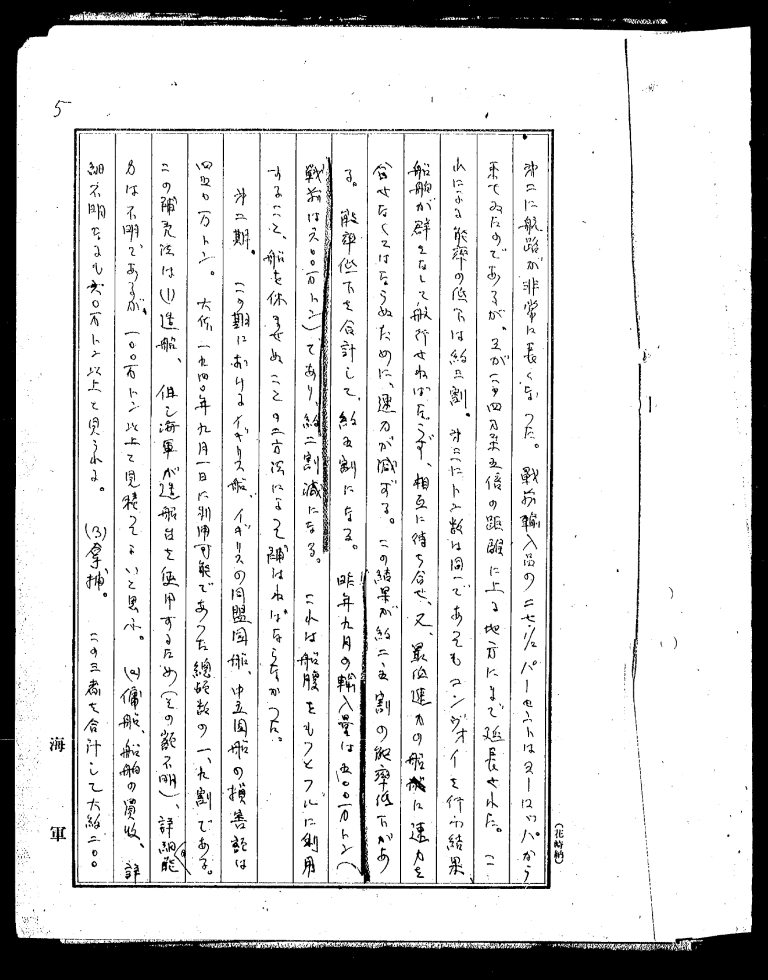 5
第二に航路が非常に長くなつた。戦前輸入品の二七1/2パーセントはヨーロッパから
来てゐたのであるが。之が三乃至五倍の距離に上る地方にまで延長された。こ
れによる能率の低下は約二割。第三にトン数は同一であつてもコンヴォイを行ふ結果、
船舶が群をなして航行せねばならず、相互に待ち合せ、又、最低速力の船に速力を
合せなくてはならぬために、速力が減ずる。この結果が約二・五割の能率低下があ
る。能率低下を合計して、約五割になる。昨年九月の輸入量は五〇〇万トン(
戦前は六〇〇万トン)であり、約二割減になる。これは船腹をもつとフルに利用
すること、船を休ませぬことの二方法によつて補はねばならなかつた。
第二期。この期におけるイギリス船、イギリスの同盟国船、中立国船の損害額は
四五〇万トン。大体一九四〇年九月一日に利用可能であつた総頓数の一、九割である。
この補充法は(1)造船、但し海軍が造船台を使用するため(その額不明)、詳細の能
力は不明であるが、一〇〇万トン以上と見積つてよいと思ふ。(2)傭船、船舶の買收、詳
細不明なるも六〇万トン以上と見らる。(3)拿捕。この三者を合計して大約二〇〇
海軍